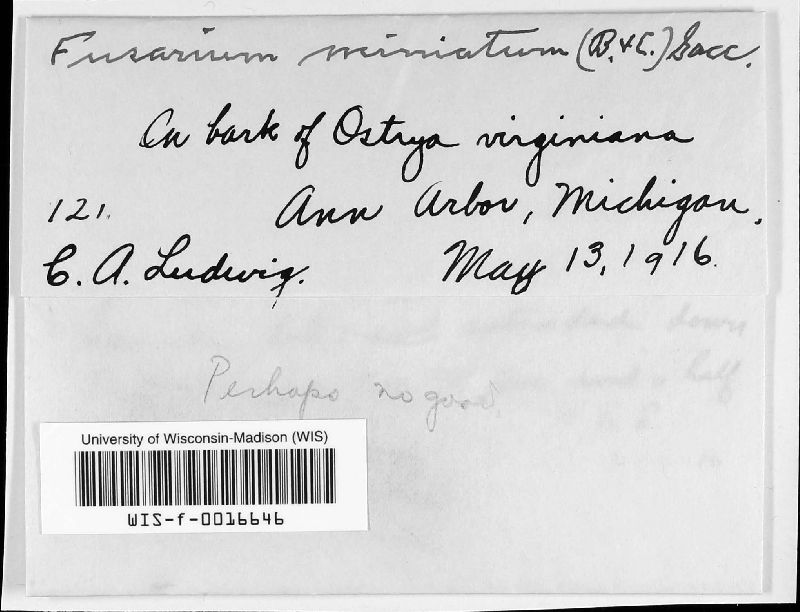 Fusarium miniatum (B. & C.) Sacc.
On bark of Ostrya virginiana
121. Ann Arbor, Michigan,
C. A. Ludwig. May 13, 1916.
down
half
Perhaps no good.
University of Wisconsin-Madison (WIS)
WIS-f-0016646